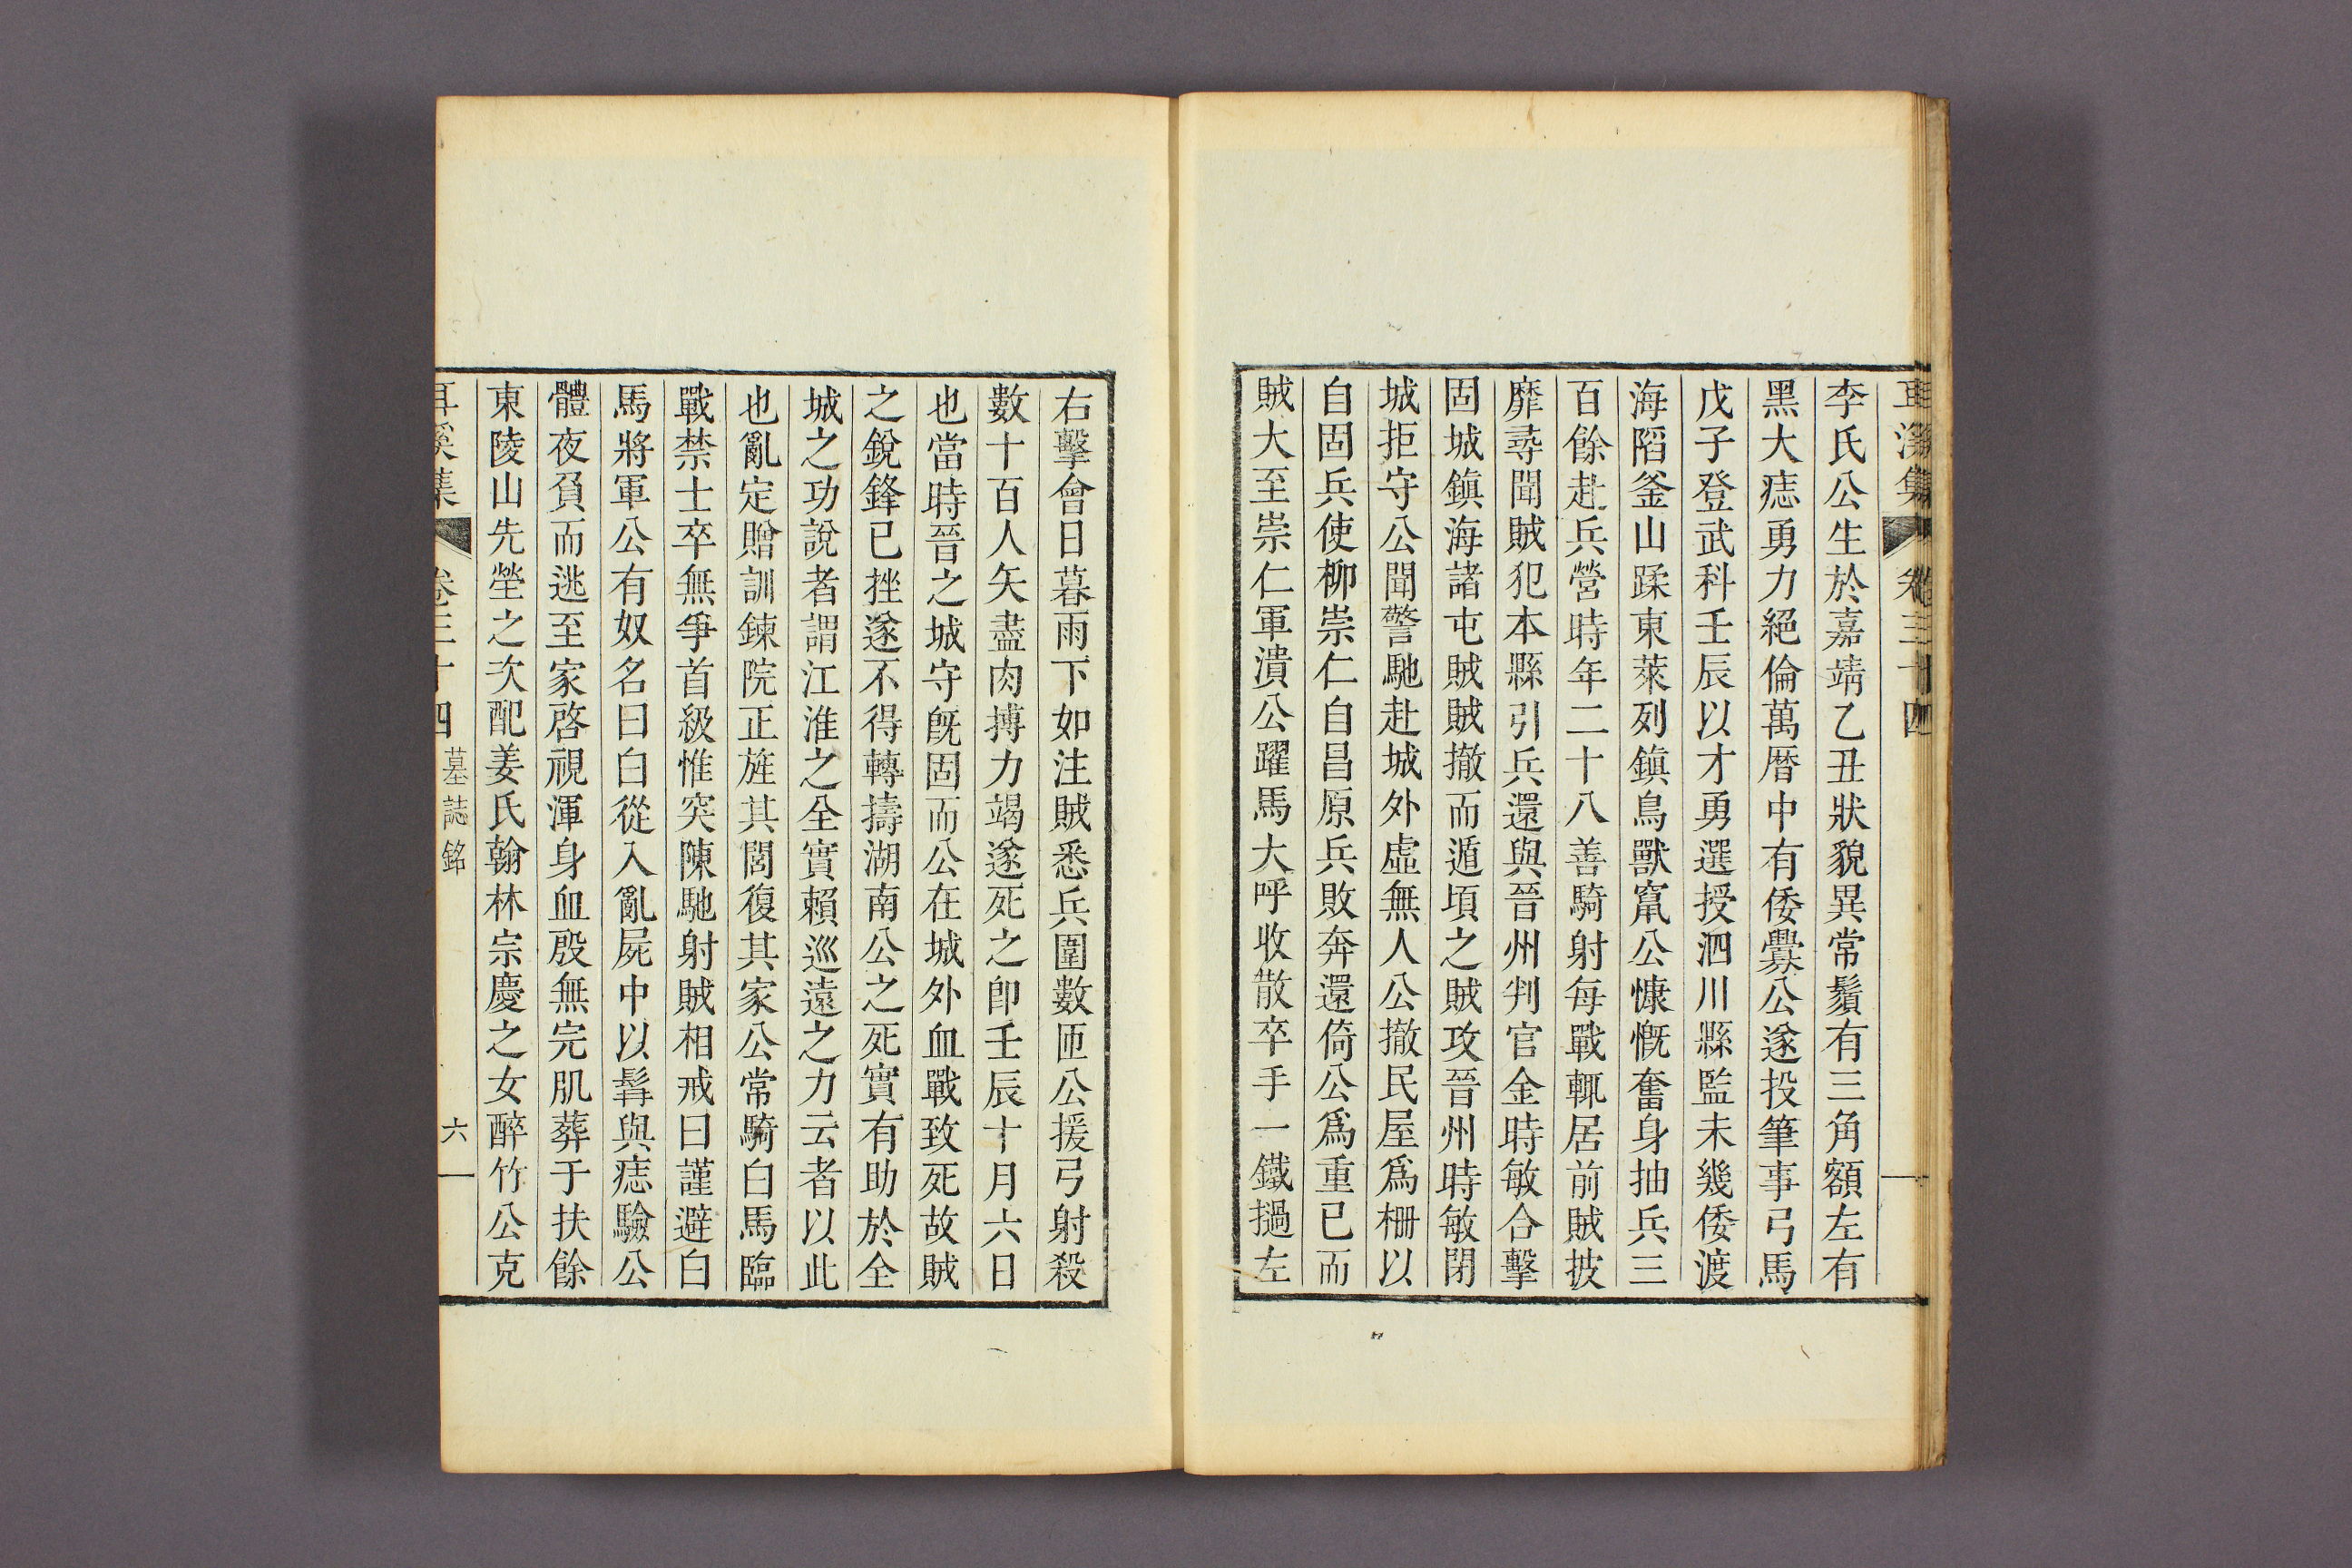 李氏公生於嘉靖乙丑狀貌異常鬚有三角額左有
黑大痣勇力絕倫萬曆中有倭釁公遂投筆事弓馬
戊子登武科壬辰以才勇選授泗川縣監未幾倭渡
海陷釜山蹂東萊列鎭鳥獸竄公慷慨奮身抽兵三
百餘赴兵營時年二十八善騎射每戰輒居前賊披
靡尋聞賊犯本縣引兵還與晉州判官金時敏合擊
固城鎭海諸屯賊賊撤而遁頃之賊攻晉州時敏閉
城拒守公聞警馳赴城外虛無人公撤民屋爲柵以
自固兵使柳崇仁自昌原兵敗奔還倚公爲重已而
賊大至崇仁軍潰公躍馬大呼收散卒手一鐵撾左
右擊會日暮雨下如注賊悉兵圍數匝公援弓射殺
數十百人矢盡肉搏力竭遂死之卽壬辰十月六日
也當時晉之城守旣固而公在城外血戰致死故賊
之銳鋒已挫遂不得轉擣湖南公之死實有助於全
城之功說者謂江淮之全實賴巡遠之力云者以此
也亂定贈訓鍊院正旌其閭復其家公常騎白馬臨
戰禁士卒無爭首級惟突陳馳射賊相戒曰謹避白
馬將軍公有奴名曰白從入亂屍中以髯與痣驗公
體夜負而逃至家啓視渾身血殷無完肌葬于扶餘
東陵山先塋之次配姜氏翰林宗慶之女醉竹公克
耳溪集 卷三十四 墓誌銘 六